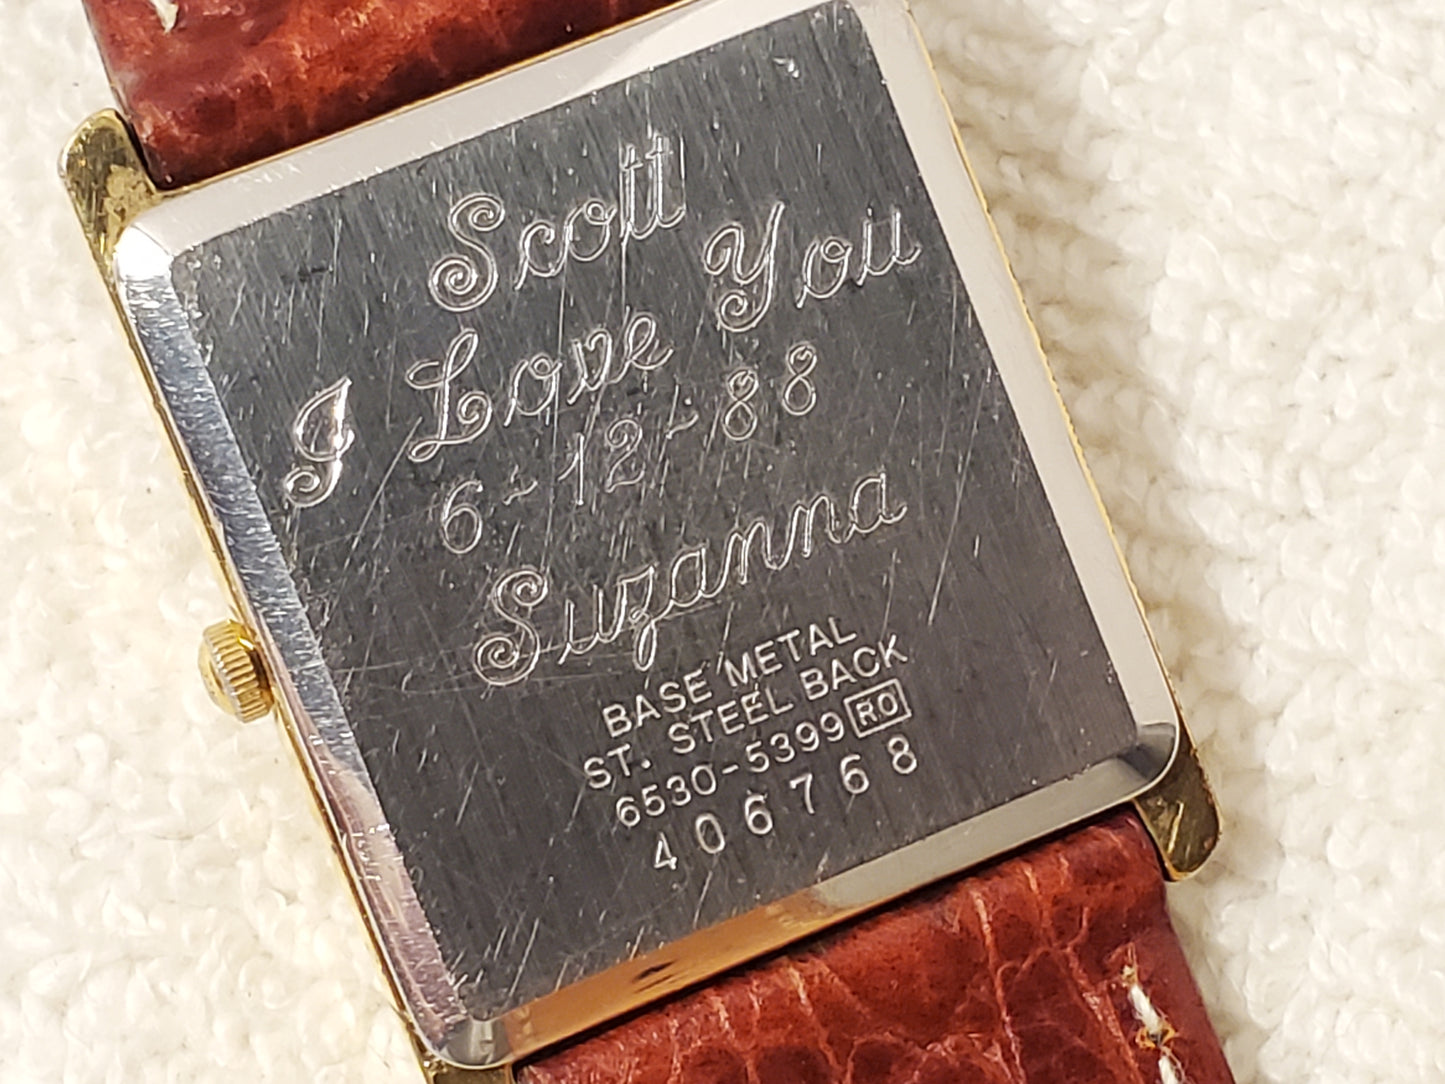 Scott
I Love You
6-12-88
Suzanna
BASE METAL
ST. STEEL BACK
6530-5399 RO
406768